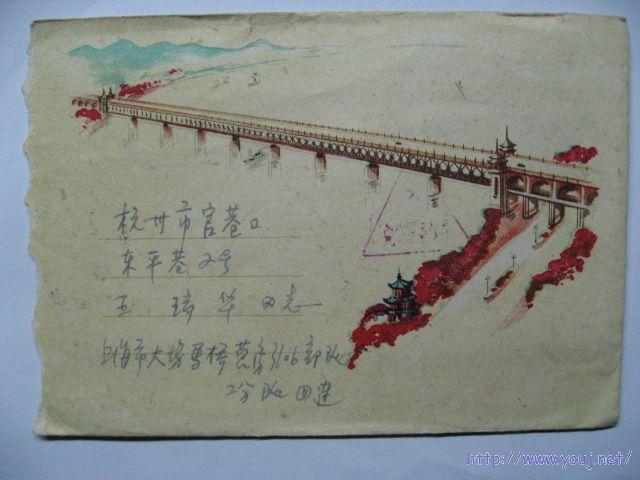 杭州市官巷口
东平巷2号
王瑞华同志
上海市大场马桥营房3106部队
2分队四连
http://www.youj.net/